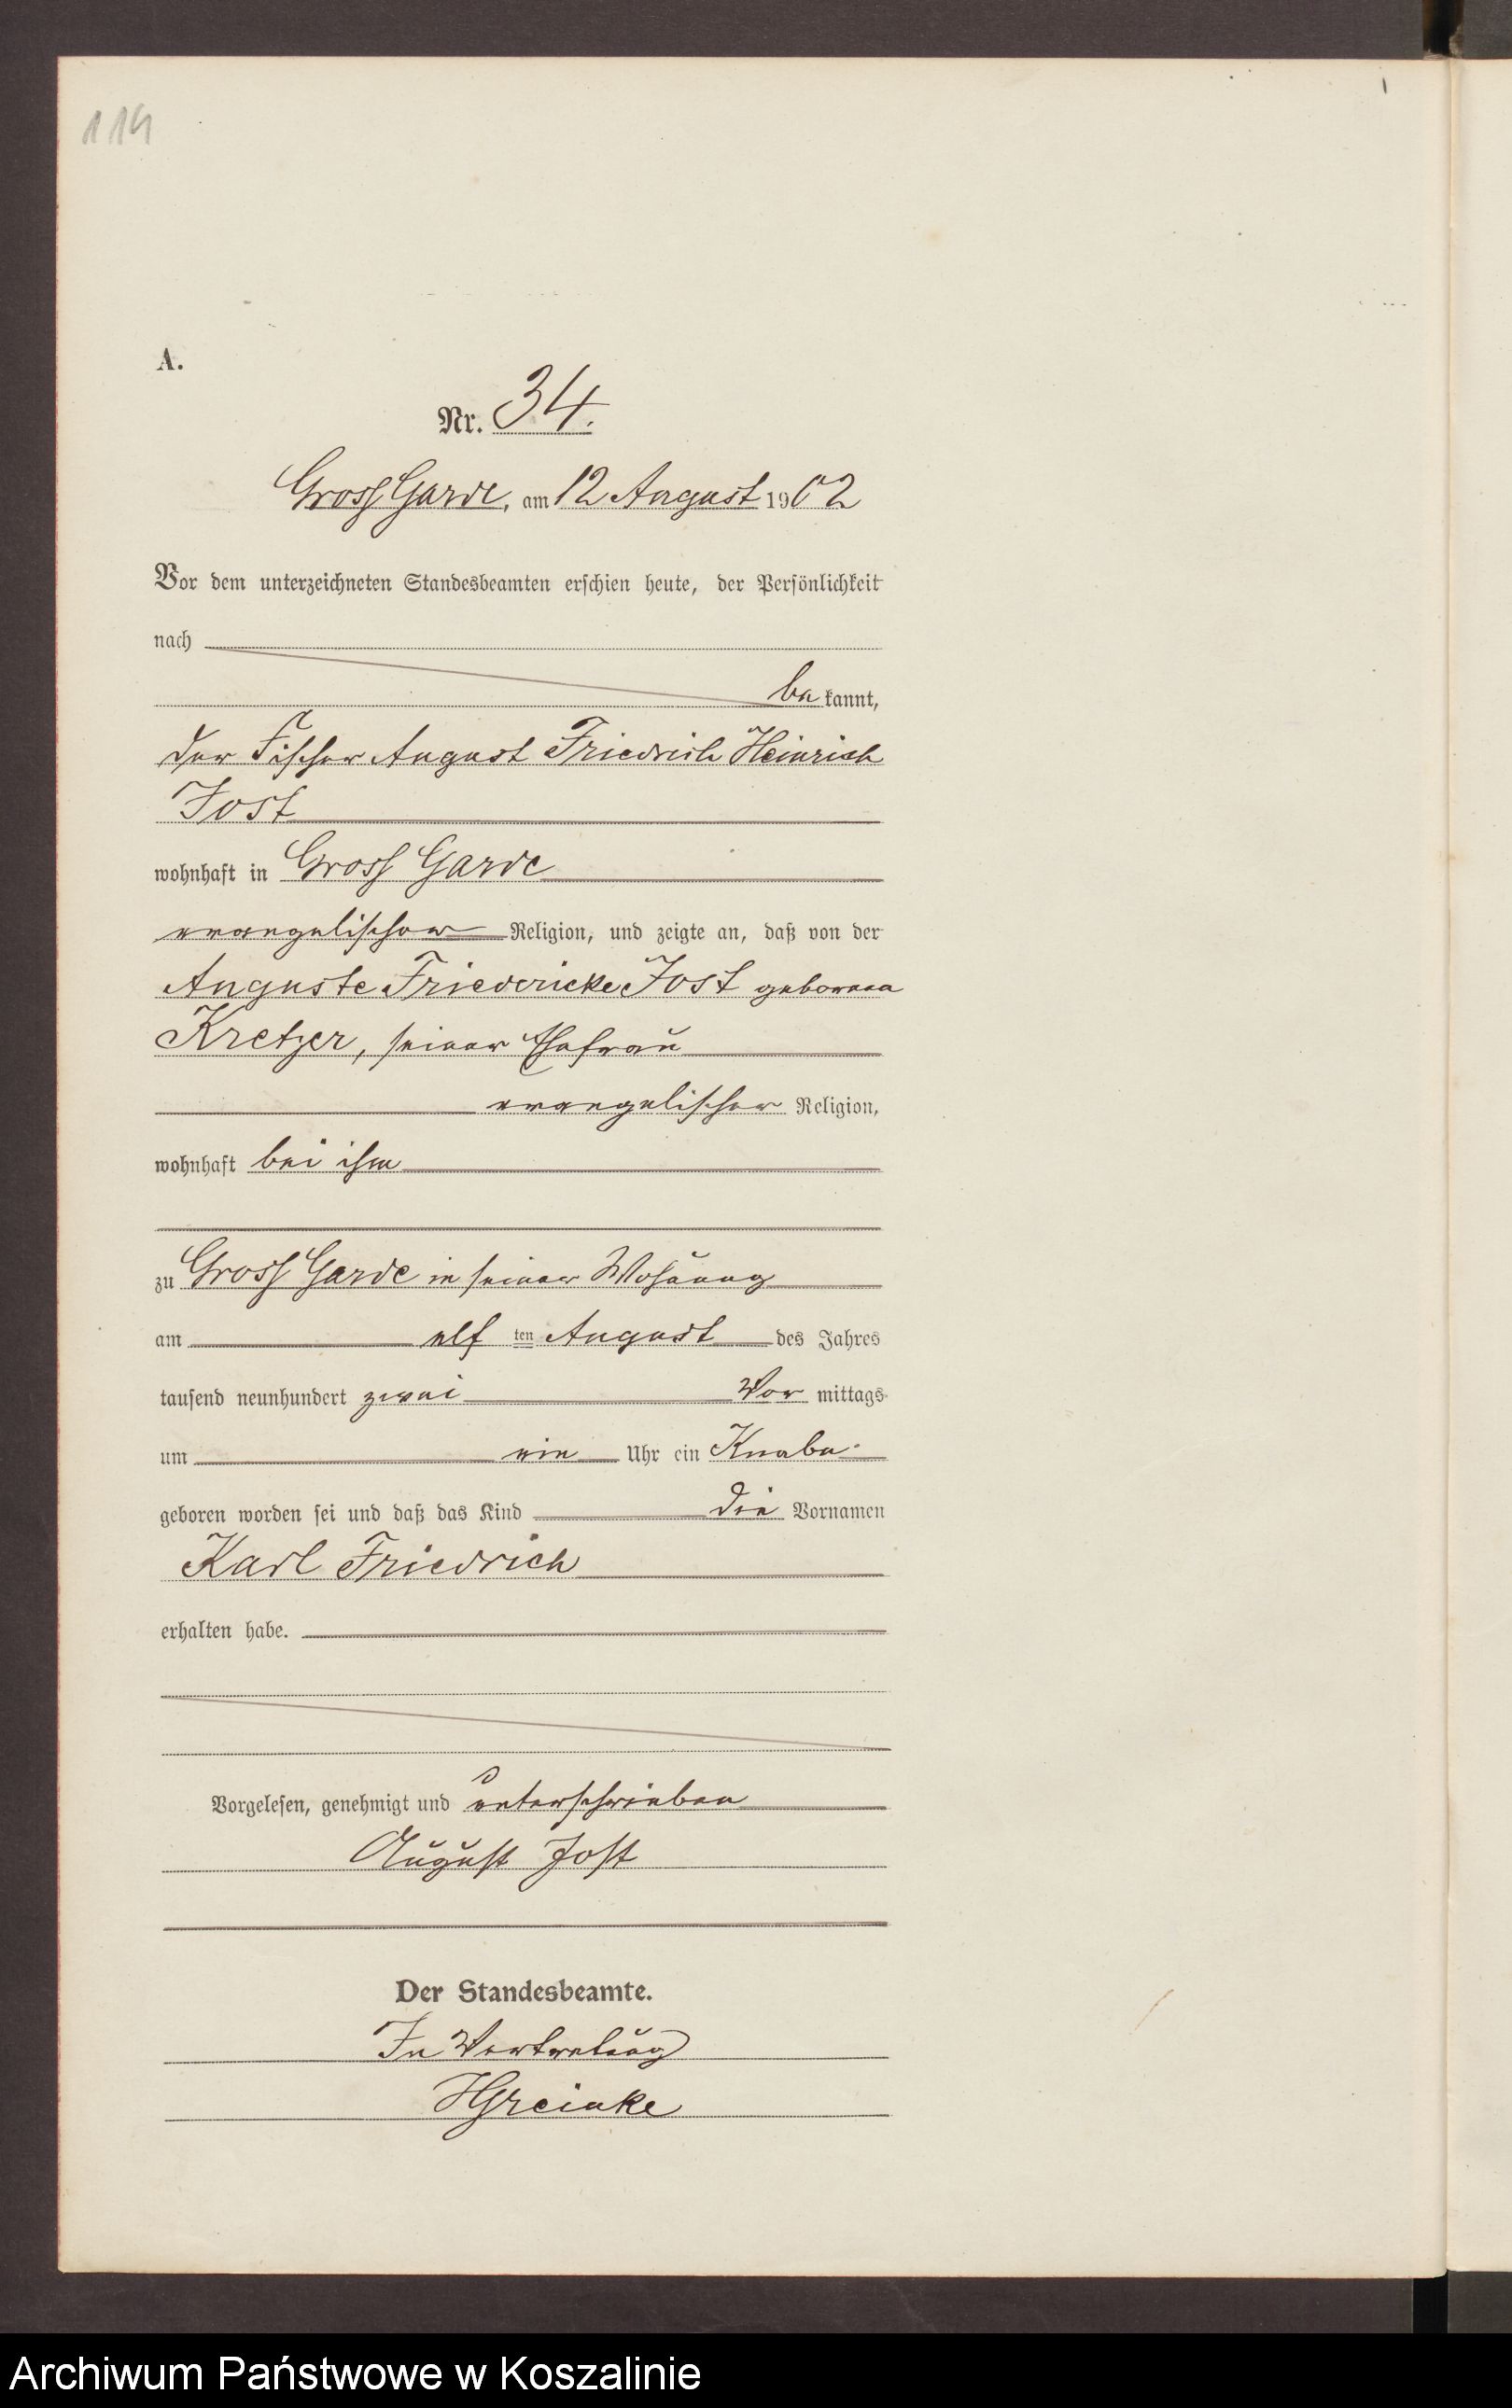 114
A.
Nr. 34.
Gross Garde, am 12 August 1902
Vor dem unterzeichneten Standesbeamten erschien heute, der Persönlichkeit
nach
bekannt,
der Fischer August Friedrich Heinrich
Jost
wohnhaft in Gross Garde
evangelischer Religion, und zeigte an, daß von der
Auguste Friedericke Jost geborenen
Kretzer, seiner Ehefrau
evangelischer Religion,
wohnhaft bei ihm
zu Gross Garde in seiner Wohnung
am elf ten August des Jahres
tausend neunhundert zwei Vor mittags
um ein Uhr ein Knabe
geboren worden sei und daß das Kind die Vornamen
Karl Friedrich
erhalten habe.
Vorgelesen, genehmigt und unterschrieben
August Jost
Der Standesbeamte.
In Vertretung
HGreinke
Archiwum Państwowe w Koszalinie